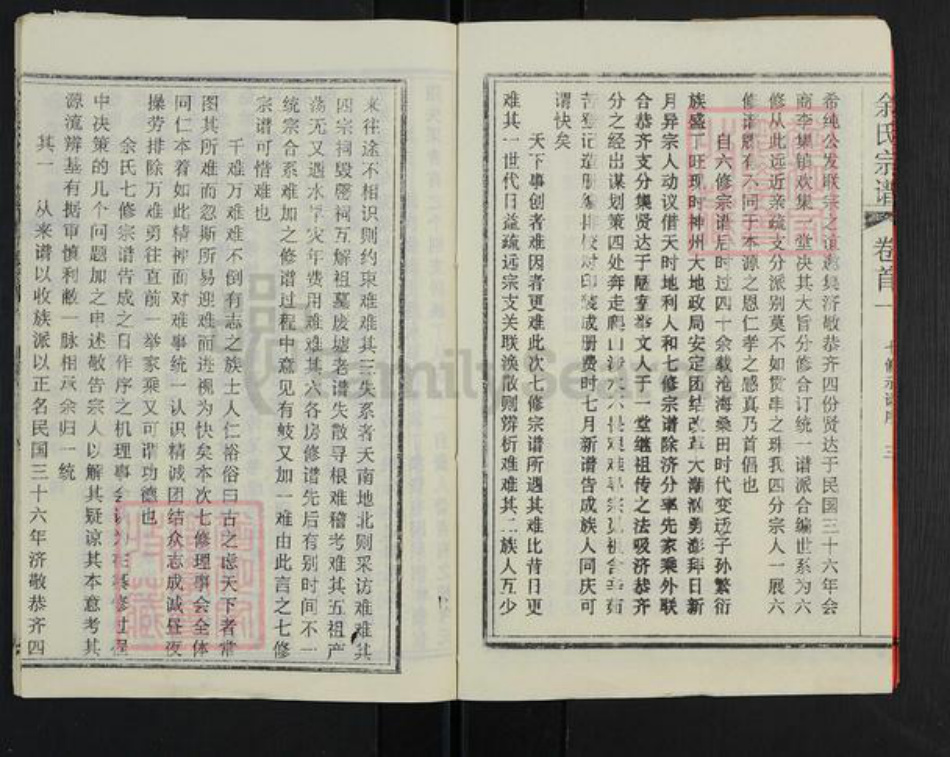 余氏宗谱 卷首一 七修宗谱序 三
希纯公发联宗之道邀集济敬恭齐四份贤达于民国三十六年会
商李集镇欢集一堂决其大旨分修合订统一谱派合编世系为六
修从此远近亲疏支分派别莫不如贯串之珠我四分宗人一展六
修谱既有不同于本源之恩仁孝之感真乃首倡也
自六修宗谱后时过四十余载沧海桑田时代变迁子孙繁衍
族盛丁旺现时神州大地政局安定团结改革大潮汹勇澎拜日新
月异宗人动议借天时地利人和七修宗谱除济分率先家乘外联
合恭齐支分集贤达于陋室举文人于一堂继祖传之法吸济恭齐
分之经出谋划策四处奔走爬山涉水不畏艰难寻宗觅祖含辛茹
苦登记造册编排校对印装成册费时七月新谱告成族人同庆可
谓快矣
天下事创者难因者更难此次七修宗谱所遇其难比昔日更
难其一世代日益疏远宗支关联涣散则辨析难难其二族人互少
来往途不相识则约束难难其三失系者天南地北则采访难难其
四宗祠毁罄祠互解祖墓废墟老谱失散寻根难稽考难其五祖产
荡无又遇水旱灾年费用难难其六各房修谱先后有别时间不一
统宗合系难加之修谱过程中意见有岐又加一难由此言之七修
宗谱可惜难也
千难万难难不倒有志之族士人仁裕俗曰古之虑天下者常
图其所难而忽斯所易迎难而进视为快矣本次七修理事会全体
同仁本着如此精神面对难事统一认识精诚团结众志成诚昼夜
操劳排除万难勇往直前一举家乘又可谓功德也
余氏七修宗谱告成之日作序之机理事会认为在纂修过程
中决策的几个问题加之申述敬告宗人以解其疑谅其本意考其
源流辨基有据审慎利敝一脉相承余归一统
其一 从来谱以收族派以正名民国三十六年济敬恭齐四